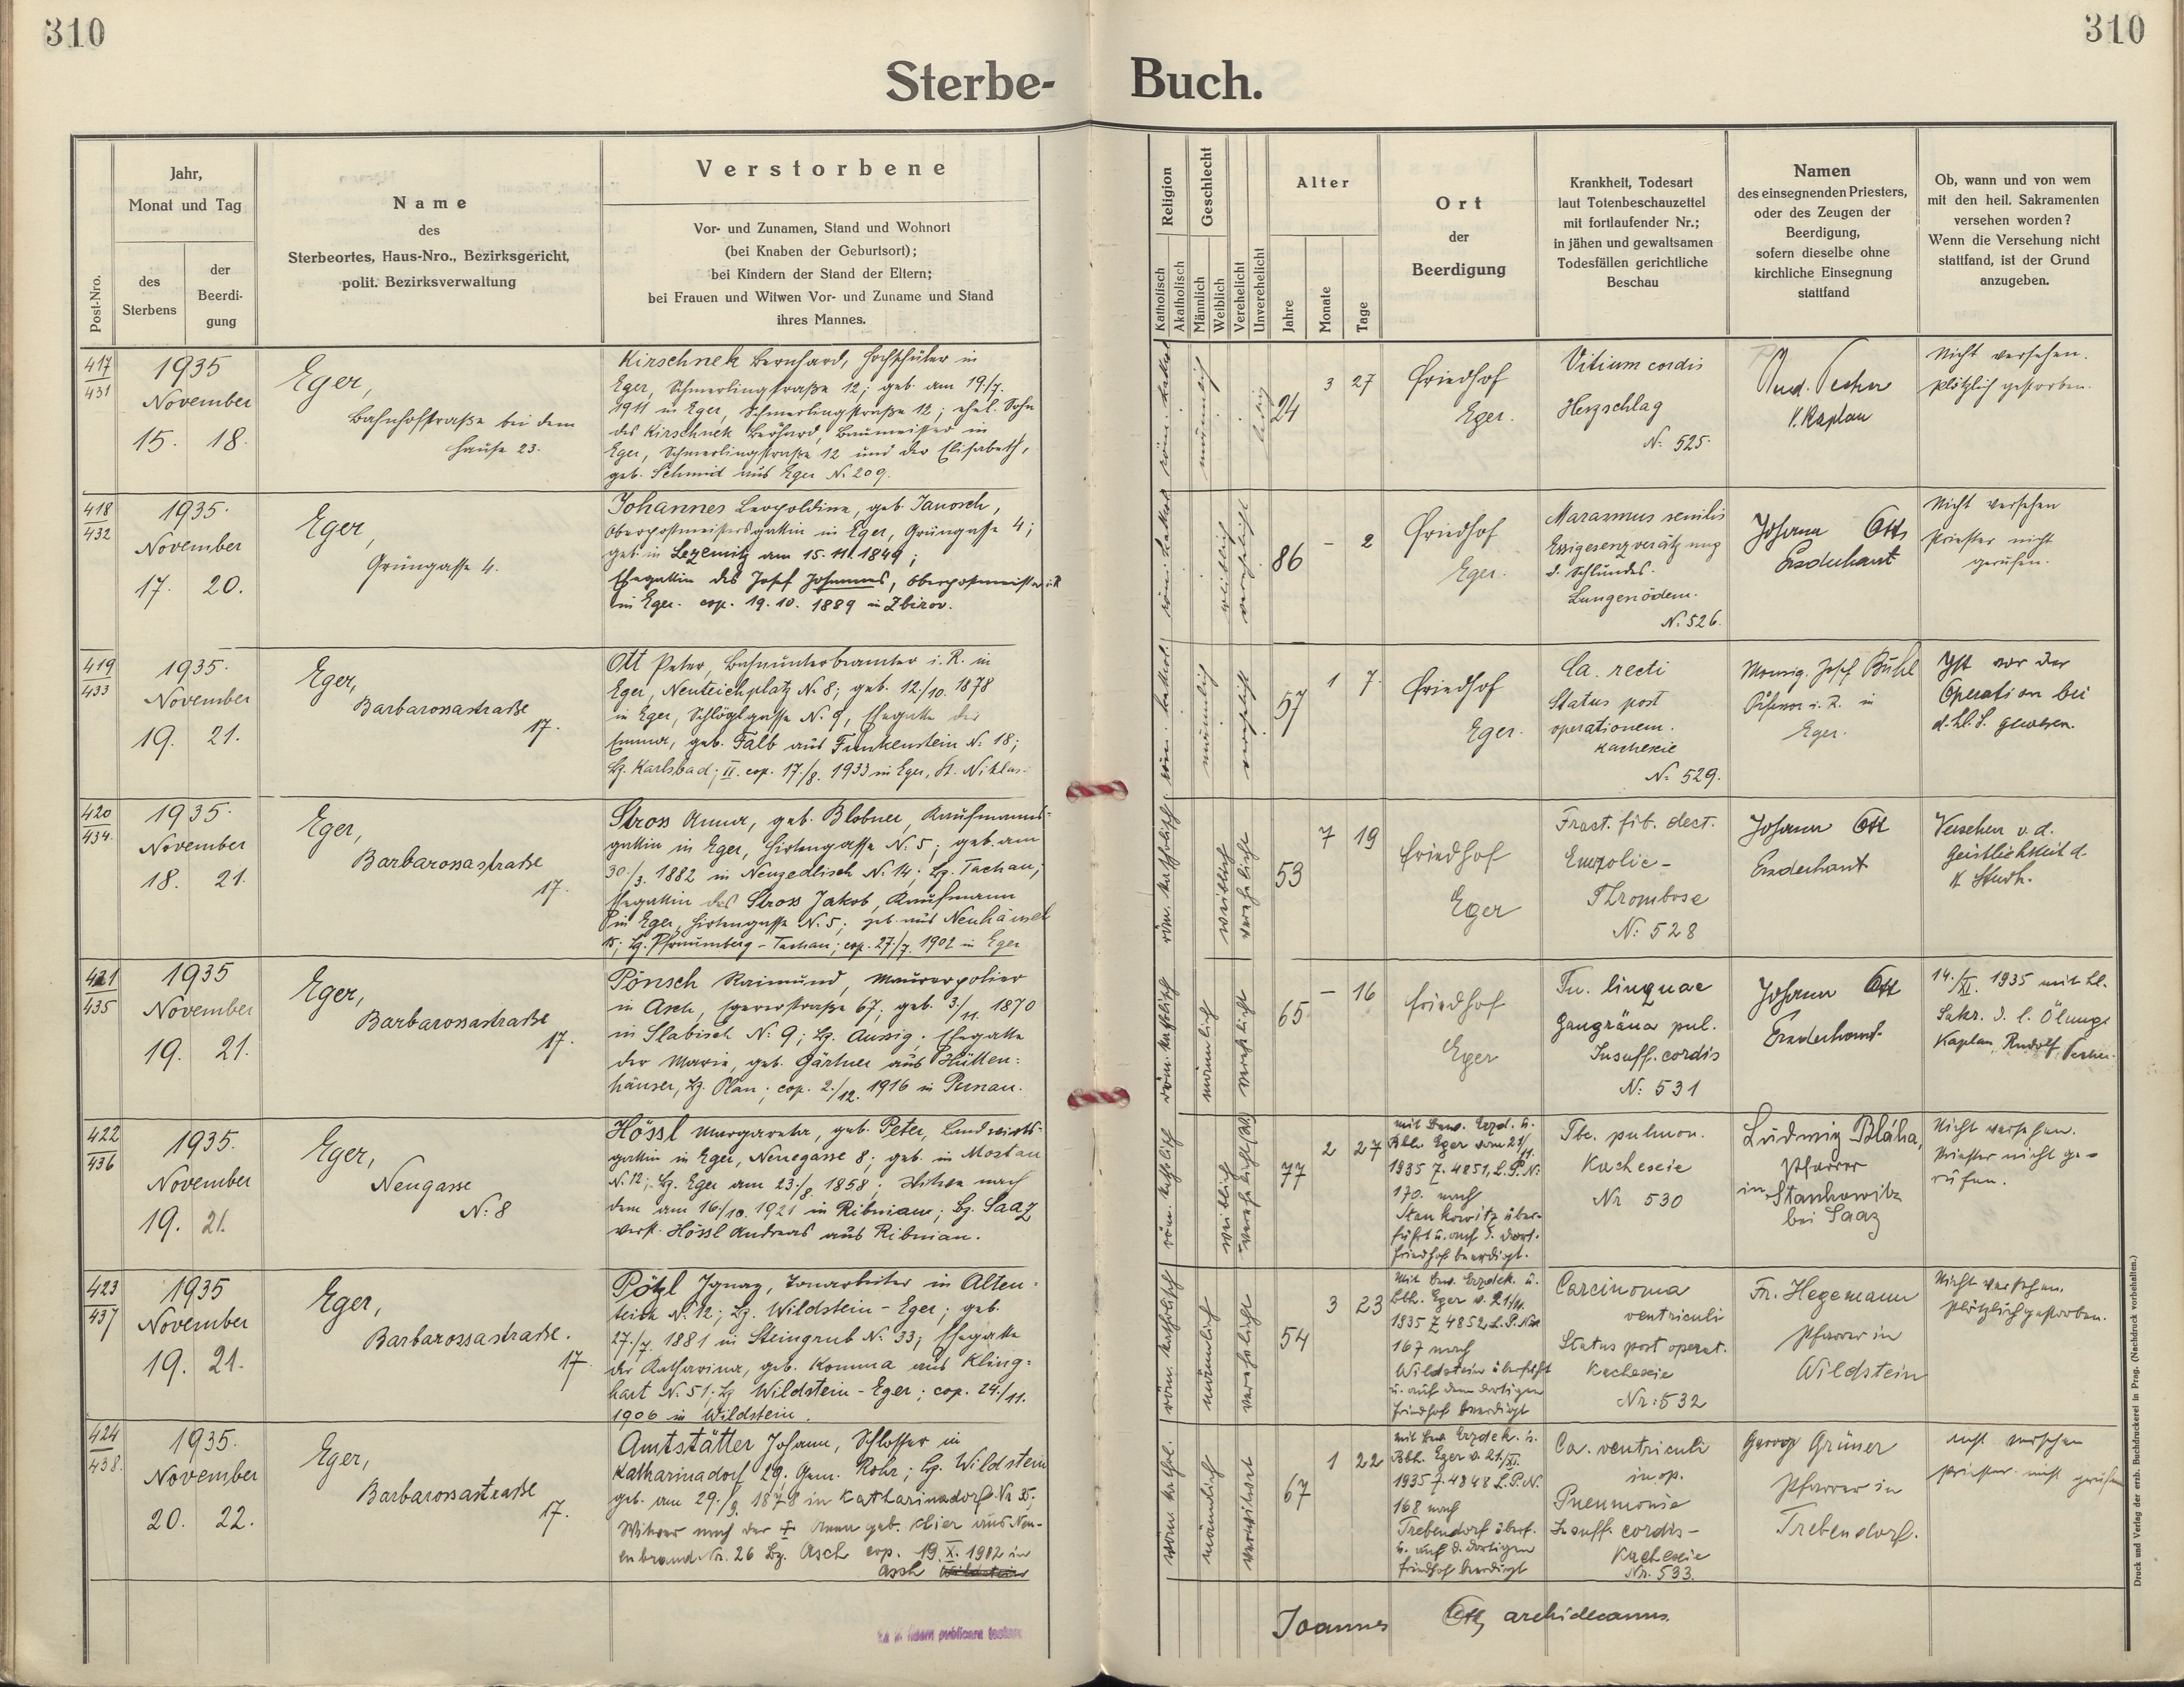 310
310
Sterbe- Buch.
Post-Nro.
Jahr,
Monat und Tag
des
Sterbens
der
Beerdi-
gung
Name
des
Sterbeortes, Haus-Nro., Bezirksgericht,
polit. Bezirksverwaltung
Verstorbene
Vor- und Zunamen, Stand und Wohnort
(bei Knaben der Geburtsort);
bei Kindern der Stand der Eltern;
bei Frauen und Witwen Vor- und Zuname und Stand
ihres Mannes.
Religion
Katholisch
Akatholisch
Geschlecht
Männlich
Weiblich
Verehelicht
Unverehelicht
Alter
Jahre
Monate
Tage
Ort
der
Beerdigung
Krankheit, Todesart
laut Totenbeschauzettel
mit fortlaufender Nr.;
in jähen und gewaltsamen
Todesfällen gerichtliche
Beschau
Namen
des einsegnenden Priesters,
oder des Zeugen der
Beerdigung,
sofern dieselbe ohne
kirchliche Einsegnung
stattfand
Ob, wann und von wem
mit den heil. Sakramenten
versehen worden?
Wenn die Versehung nicht
stattfand, ist der Grund
anzugeben.
417
431
1935
November
15. 18.
Eger,
Bahnhofstraße bei dem
Hause 23.
Kirschnek Bernhard, Hochschüler in
Eger, Schmerlingstraße 12; geb. am 19./7.
1911 in Eger, Schmerlingstraße 12; ehel. Sohn
des Kirschnek Bernhard, Baumeister in
Eger, Schmerlingstraße 12 und der Elisabeth,
geb. Schmid aus Eger N. 209.
röm. kathol.
männlich
ledig
24
3 27
Friedhof
Eger.
Vitium cordis
Herzschlag
N: 525.
Rud. Pecher
V. Kaplan
Nicht versehen.
plötzlich gestorben.
418
432
1935.
November
17. 20.
Eger,
Grüngasse 4.
Johannes Leopoldine, geb. Janosch,
Oberpostmeistersgattin in Eger, Grüngasse 4;
geb. in Lezemitz am 15. III. 1849;
Ehegattin des Josef Johannes, Oberpostmeister i. R.
in Eger. cop. 19. 10. 1889 in Zbirov.
röm. kathol.
weiblich
verehelicht
86
- 2
Friedhof
Eger.
Marasmus senilis
Essigesenzverätzung
d. Schlundes.
Lungenödem.
N: 526.
Johann Ott,
Erzdechant
Nicht versehen
Priester nicht
gerufen.
419
433
1935.
November
19. 21.
Eger,
Barbarossastraße
17.
Ott Peter, Bahnunterbeamter i. R. in
Eger, Neuteichplatz N. 8; geb. 12./10. 1878
in Eger, Schlöglgasse N. 9, Ehegatte der
Emma, geb. Falb aus Funkenstein N. 18;
Bz. Karlsbad; II. cop. 17./8. 1933 in Eger, St. Niklas.
röm. kathol.
männlich
verehelicht
57
1 7.
Friedhof
Eger.
Ca. recti
Status post
operationem.
Kachexie
N: 529.
Monsig. Josef Bühl
Professor i. R. in
Eger.
Ist vor der
Operation bei
d. hl. S. gewesen.
420
434.
1935.
November
18. 21.
Eger,
Barbarossastraße
17.
Stross Anna, geb. Blobner, Kaufmanns-
gattin in Eger, Hirtengasse N. 5; geb. am
30./3. 1882 in Neuzedlisch N. 14; Bz. Tachau;
Ehegattin des Stross Jakob, Kaufmann
in Eger, Hirtengasse N. 5; geb. aus Neuhäusel
15; Bz. Pfraumberg - Tachau; cop. 27./7. 1902 in Eger
röm. katholisch
weiblich
verehelicht
53
7 19
Friedhof
Eger
Fract. fib. dect.
Empolie -
Thrombose
N: 528
Johann Ott
Erzdechant
Versehen v. d.
Geistlichkeit d.
421
435
1935
November
19. 21.
Eger,
Barbarossastraße
17.
Pönsch Raimund, Maurerpolier
in Asch, Egererstraße 67; geb. 3/11. 1870
in Slabisch N: 9; Bz. Aussig; Ehegatte
der Marie, geb. Gärtner aus Hütten-
häuser, Bz. Plan; cop. 2./12. 1916 in Pernau.
röm. katholisch
männlich
verehelicht
65
- 16
Friedhof
Eger
Tu. linguae
Gangräna pul.
Insuff. cordis
N: 531
Johann Ott
Erzdechant.
14./XI. 1935 mit hl.
Sakr. d. l. Ölung.
Kaplan, Rudolf Pecher.
422
436
1935.
November
19. 21.
Eger,
Neugasse
N: 8
Hössl Margareta, geb. Peter, Landwirts-
gattin in Eger, Neuegasse 8; geb. in Mostau
N. 12; Bz. Eger am 23./8. 1858; Witwe nach
dem am 16./10. 1921 in Ribnian; Bz. Saaz
verst. Hössl Andreas aus Ribnian.
röm. katholisch
weiblich
verehelicht (W)
77
2 27
mit Bew. Erzd. u.
Bbh. Eger vom 21/11.
1935 Z. 4851, L. P. N:
170. nach
Stankowitz über-
führt u. auf d. dort.
Friedhof beerdigt.
Tbc. pulmon.
Kachexie
Nr 530
Ludwig Bláha,
Pfarrer
in Stankowitz
bei Saaz
Nicht versehen.
Priester nicht ge-
rufen.
423
437
1935
November
19. 21.
Eger,
Barbarossastraße.
17.
Pötzl Ignaz, Tonarbeiter in Alten-
teich N. 12; Bz. Wildstein - Eger; geb.
27./7. 1881 in Steingrub N: 33; Ehegatte
der Katharina, geb. Komma aus Kling-
hart N. 51; Bz Wildstein - Eger; cop. 24./11.
1906 in Wildstein.
röm. katholisch
männlich
verehelicht
54
3 23
Mit Bew. Erzdek. u.
Bbh. Eger v. 21/11.
1835 Z 4852 L. P. Nr
167 nach
Wildstein überführt
u. auf dem dortigen
Friedhof beerdigt
Carcinoma
ventriculi
Status post operat.
Kachexie
Nr: 532
Fr. Hegemann
Pfarrer in
Wildstein
Nicht versehen.
plötzlich gestorben.
424
438.
1935.
November
20. 22.
Eger,
Barbarossastraße
17.
Amtstätter Johann, Schlosser in
Katharinadorf 29. Gem. Rohr; Bz. Wildstein
geb. am 29./9. 1878 in Katharinadorf Nr 35;
Witwer nach der † Anna geb. Klier aus Neu-
enbrand Nr. 26 Bz. Asch cop. 19. X. 1902 in
Asch Wildstein
röm. kathol.
männlich
verwitwet
67
1 22
mit Bew Erzdek. u.
Bbh. Eger v. 21/XI.
1935 Z. 4848 L. P. N.
168 nach
Trebendorf überf.
u. auf d. dortigen
Friedhof beerdigt
Ca. ventriculi
in op.
Pneumonie
Insuff. cordis -
Kachexie
Nr. 533.
Georg Grüner
Pfarrer in
Trebendorf.
nicht versehen
Priester nicht gerufen
Joannes Ott, archidecanus.
publicam
Druck und Verlag der erzb. Buchdruckerei in Prag. (Nachdruck vorbehalten.)